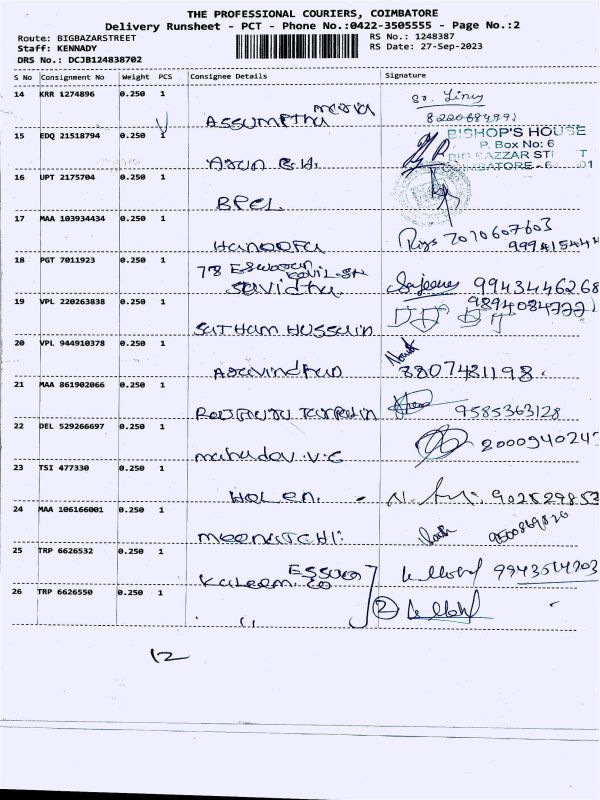 THE PROFESSIONAL COURIERS, COIMBATORE
Delivery Runsheet - PCT - Phone No.:0422-3505555 - Page No.:2
Route: BIGBAZARSTREET
RS No.: 1248387
Staff: KENNADY
RS Date: 27-Sep-2023
DRS No.: DCJB124838702
S No Consignment No Weight PCS Consignee Details Signature
14 KRR 1274896 0.250 1 Assumptha maria Sr. 8220684991
15 EDQ 21518794 0.250 1 Arun B.H.
BISHOP'S HOUSE
P. Box No: 6
BIG BAZZAR ST T
COIMBATORE - 6 01
16 UPT 2175704 0.250 1 BPCL
17 MAA 103934434 0.250 1 Haneefa 7010607603
18 PGT 7011923 0.250 1 78 Eswaran Kovil St Savidha 9943446268
19 VPL 220263838 0.250 1 Satham Hussain
20 VPL 944910378 0.250 1 Aravindhan 8807481198.
21 MAA 861902066 0.250 1 9585363128
22 DEL 529266697 0.250 1 mahadev.V.C
23 TSI 477330 0.250 1 Holen.
24 MAA 106166001 0.250 1 meenatchi.
25 TRP 6626532 0.250 1 Essaa Kaleem.co
26 TRP 6626550 0.250 1 " 2
12